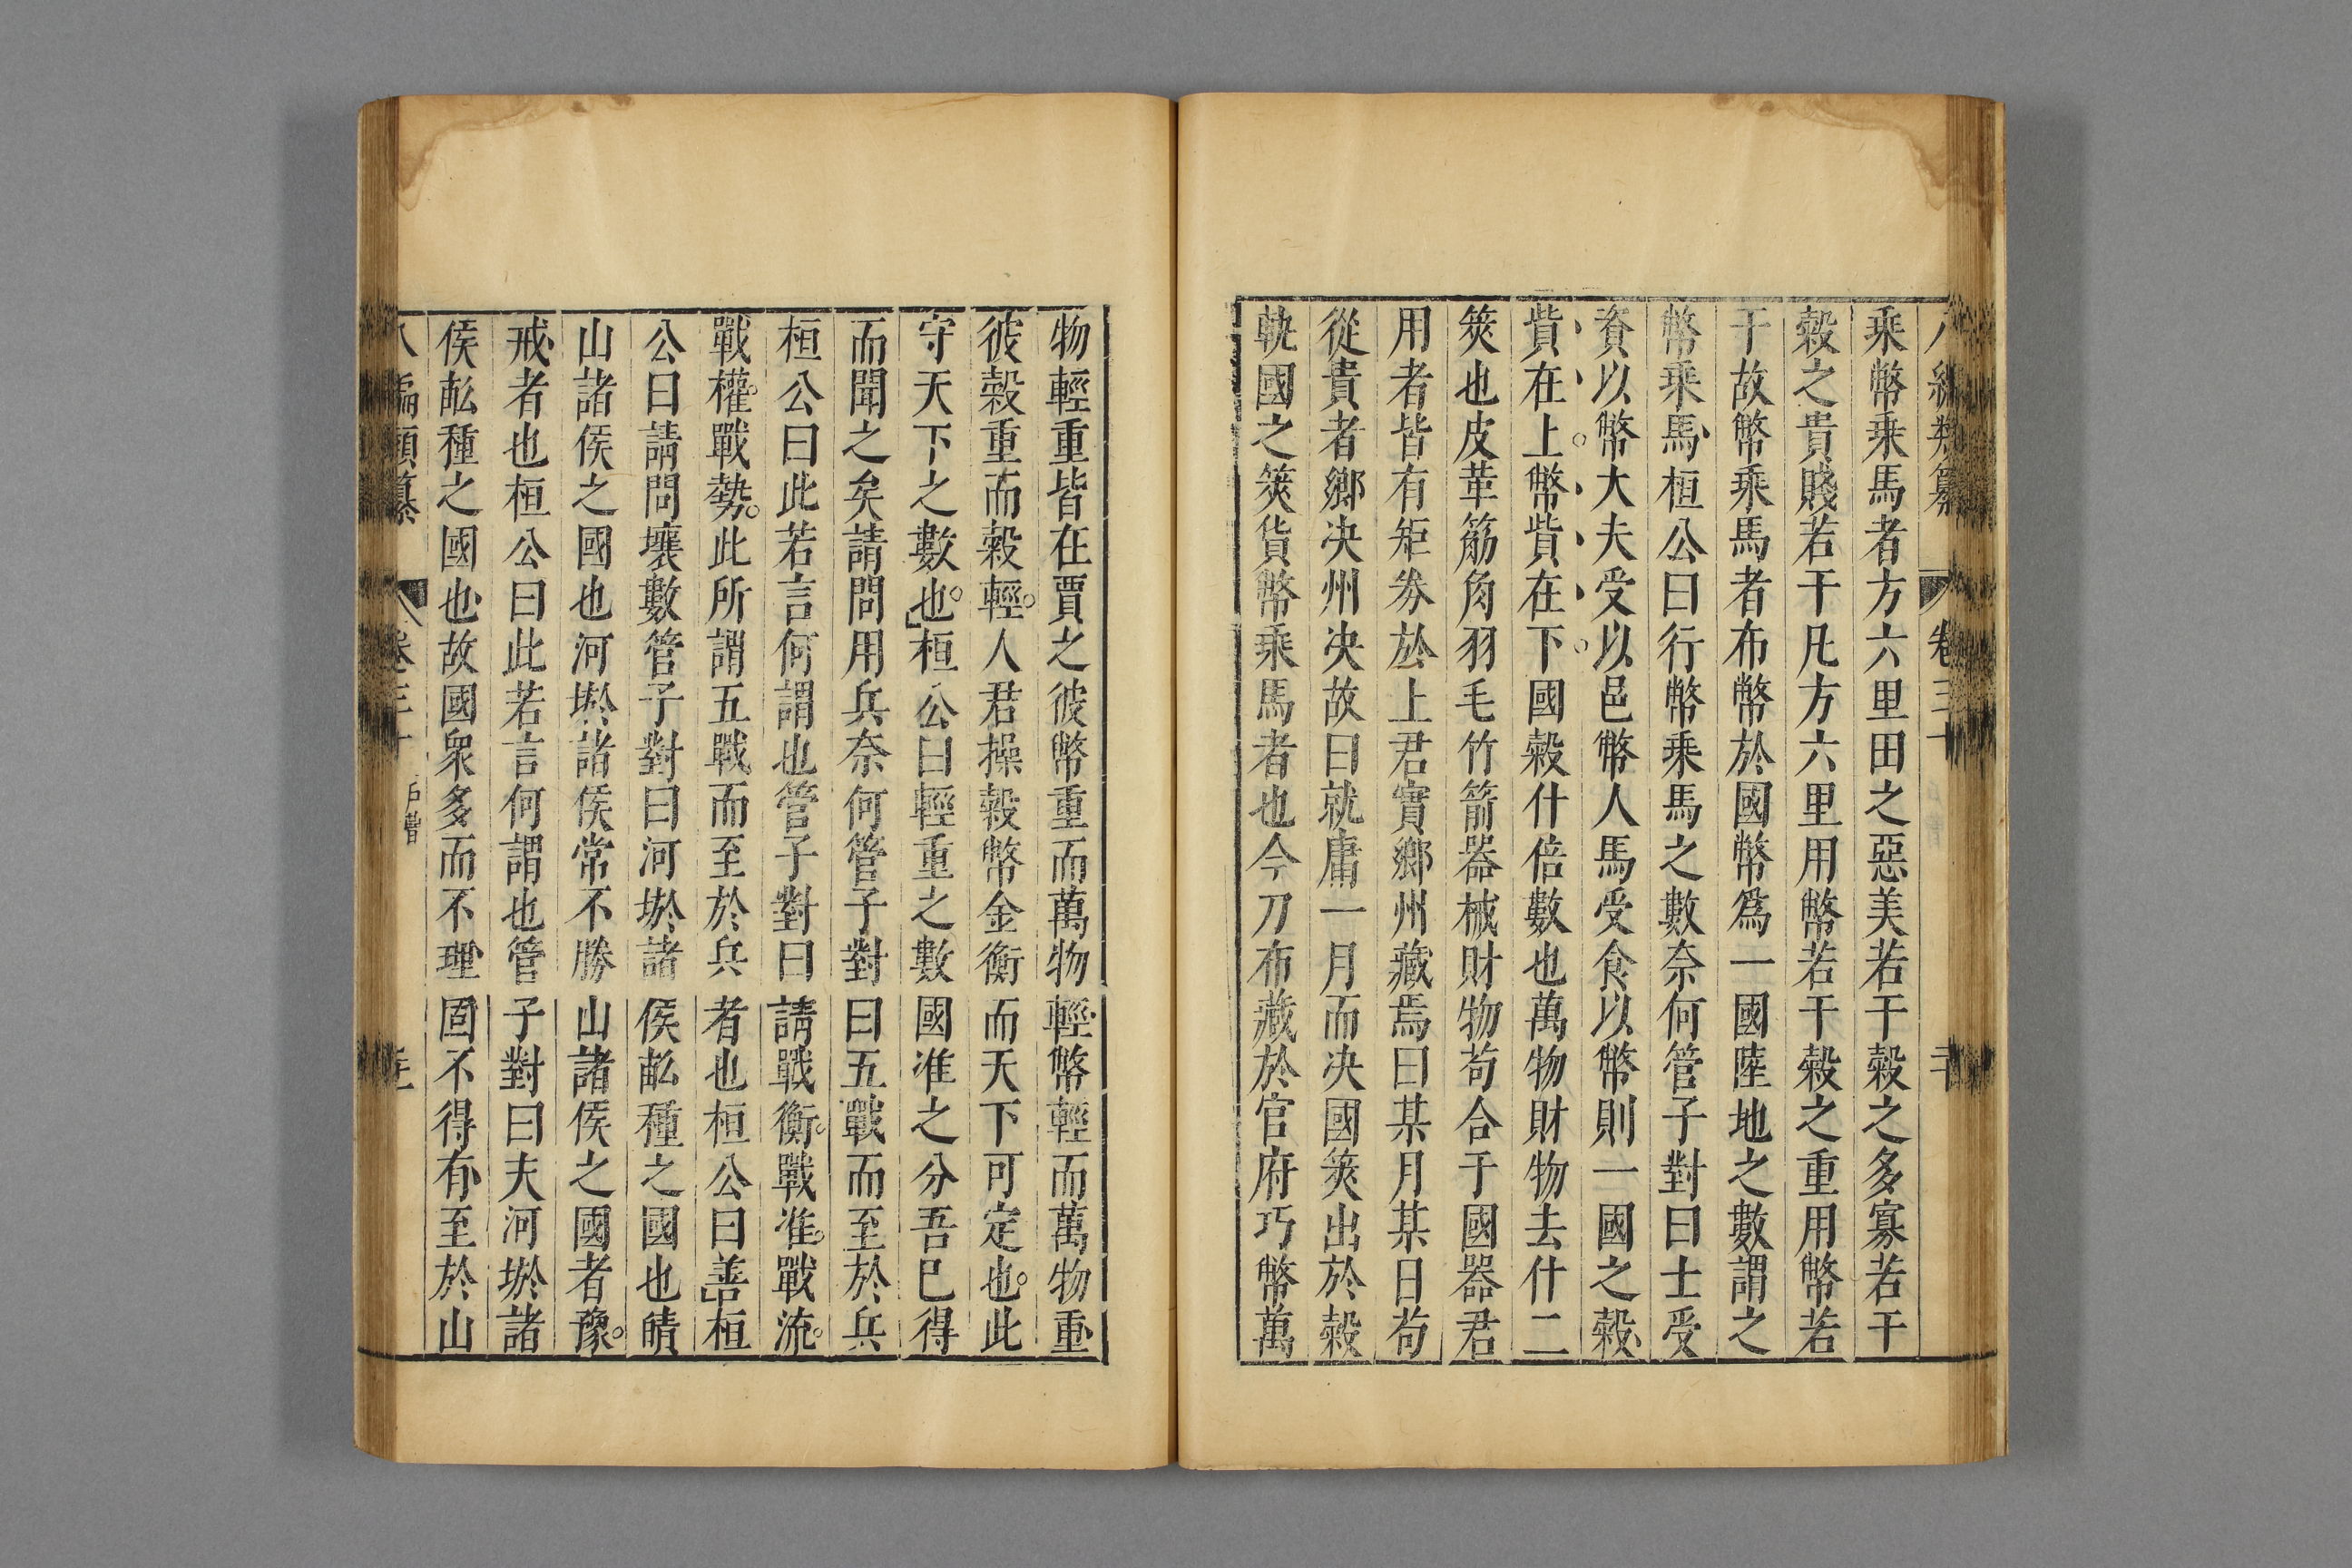 八編類纂 卷三十 二十
乘幣乘馬者方六里田之惡美若干穀之多寡若干
穀之貴賤若干凡方六里用幣若干穀之重用幣若
干故幣乘馬者布幣於國幣爲一國陸地之數謂之
幣乘馬桓公曰行幣乘馬之數奈何管子對曰士受
資以幣大夫受以邑幣人馬受食以幣則一國之穀
貲在上幣貲在下國穀什倍數也萬物財物去什二
筴也皮革筋角羽毛竹箭器械財物苟合于國器君
用者皆有矩劵於上君實鄉州藏焉曰某月某日苟
從貴者鄉決州決故曰就庸一月而決國筴出於穀
軌國之筴貨幣乘馬者也今刀布藏於官府巧幣萬
物輕重皆在賈之彼幣重而萬物輕幣輕而萬物重
彼穀重而穀輕人君操穀幣金衡而天下可定也此
守天下之數也桓公曰輕重之數國准之分吾已得
而聞之矣請問用兵奈何管子對曰五戰而至於兵
桓公曰此若言何謂也管子對曰請戰衡戰准戰流
戰權戰勢此所謂五戰而至於兵者也桓公曰善桓
公曰請問壤數管子對曰河㙂諸侯畝種之國也䝼
山諸侯之國也河㙂諸侯常不勝山諸侯之國者豫
戒者也桓公曰此若言何謂也管子對曰夫河㙂諸
侯畝種之國也故國衆多而不理固不得有至於山
八編類纂 卷三十 戶曹